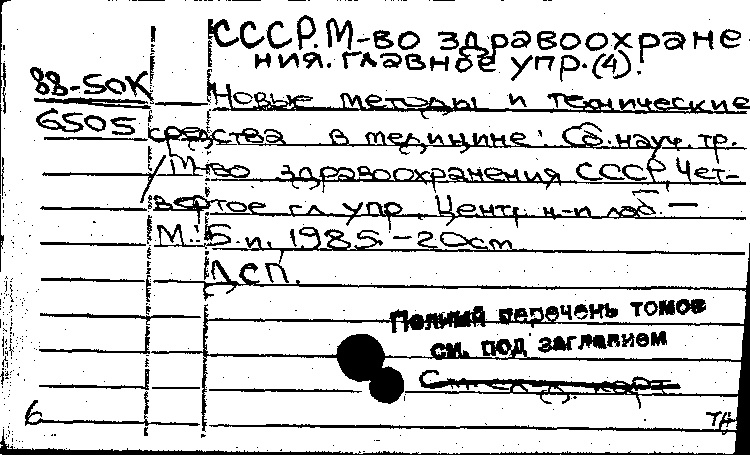 СССР. М-во здравоохране-
ния. главное упр. (4).
88-50К
Новые методы и технические
6505
средства в медицине: Сб. науч. тр.
/М-во здравоохранения СССР, Чет-
вертое гл. упр., Центр. н-и лаб. —
М.: Б. и., 1985. - 20см
ДСП.
Полный перечень томов
см. под заглавием
См. след. карт.
6